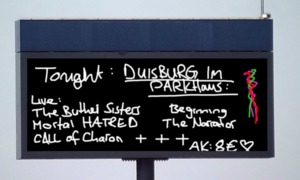 Tonight: DUISBURG Im
PARKHaus:
Live:
The Buthel Sisters
Mortal HATRED
CALL of Charon + + +
Beginning
The Narrator
AK: 8€ ♡